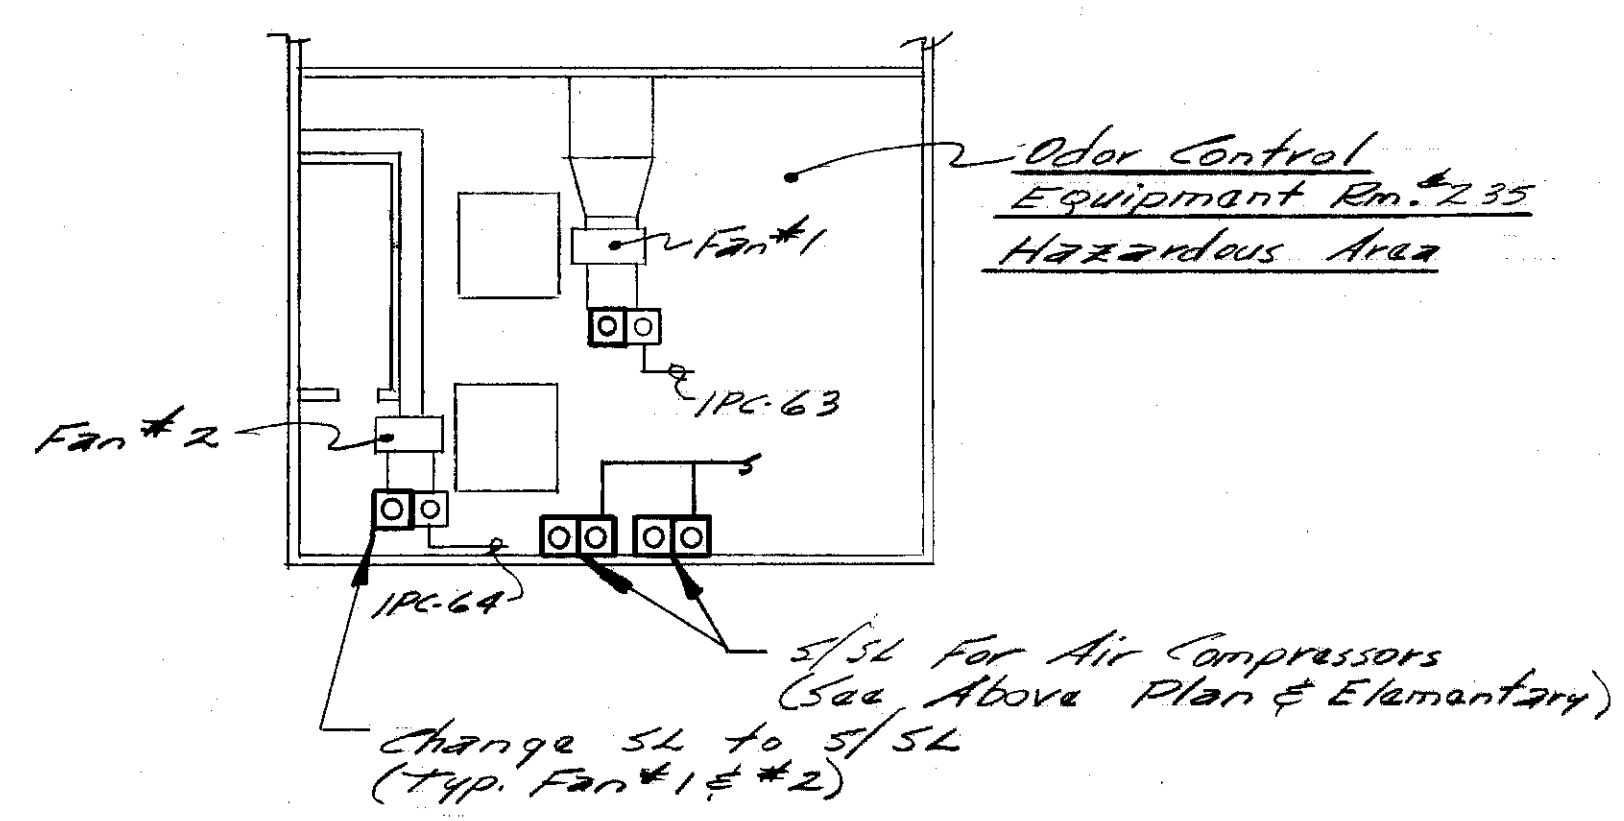 Odor Control
Equipment Rm. #235
Hazardous Area
Fan #1
1PC-63
Fan #2
1PC-64
S
S/SL For Air Compressors
(See Above Plan & Elementary)
Change SL to S/SL
(Typ. Fan #1 & #2)